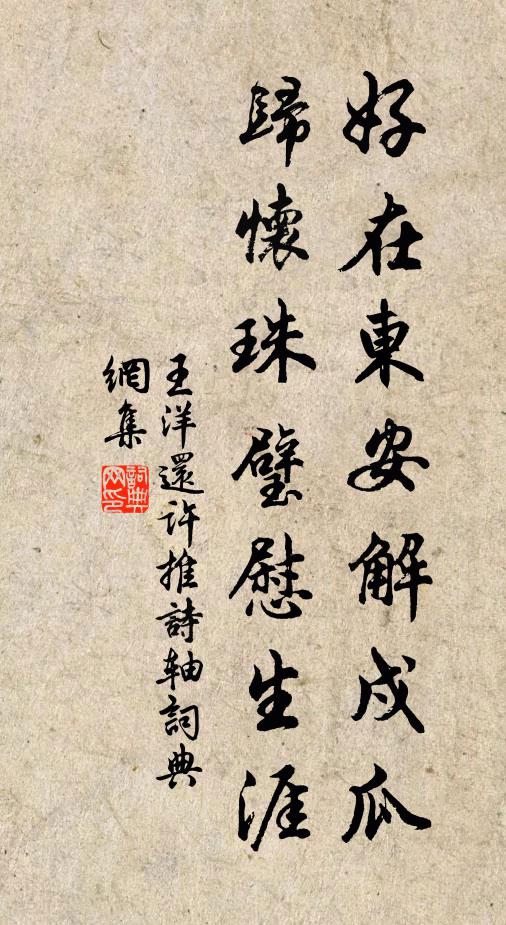 好在東安解戍瓜
歸懷珠璧慰生涯
王洋還許推詩轴詞典
網集
詞典網印